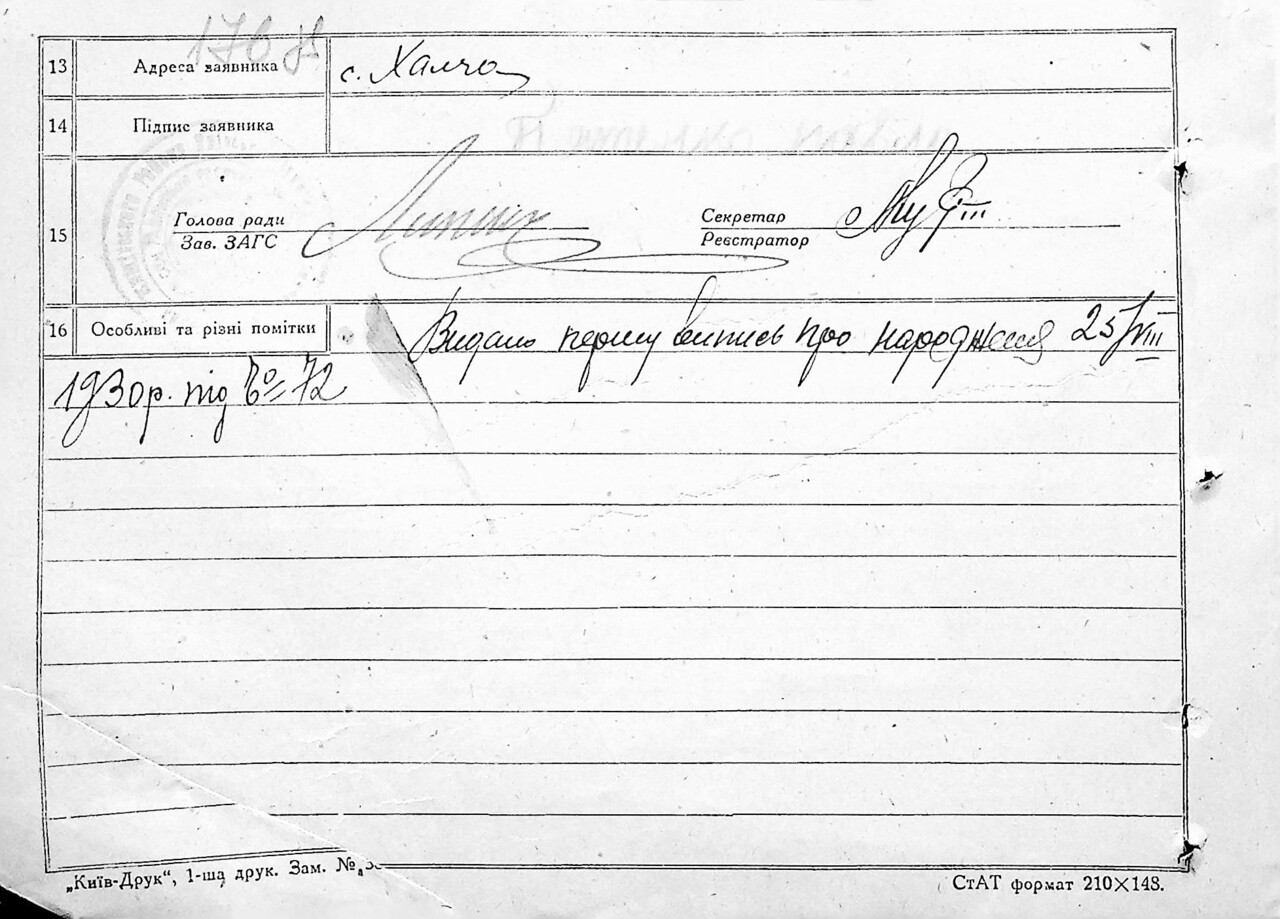 176
13 Адреса заявника с. Халча
14 Підпис заявника
15 Голова ради Секретар
Зав. ЗАГС Реєстратор
16 Особливі та різні помітки Видано першу випись про народження 25/VIII
1930р. під № 72
„Київ-Друк“, 1-ша друк. Зам. № СтАТ формат 210×148.